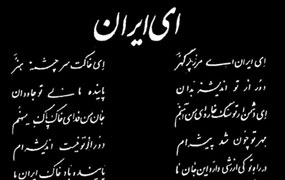 ای ایران
ای ایران ای مرز پرگهر ای خاکت سرچشمه هنر
دور از تو اندیشه بدان پاینده مانی تو جاودان
ای دشمن ار تو سنگ خاره‌ای من آهنم جان من فدای خاک پاک میهنم
مهر تو چون شد پیشه‌ام دور از تو نیست اندیشه‌ام
در راه تو کی ارزشی دارد این جان ما پاینده باد خاک ایران ما